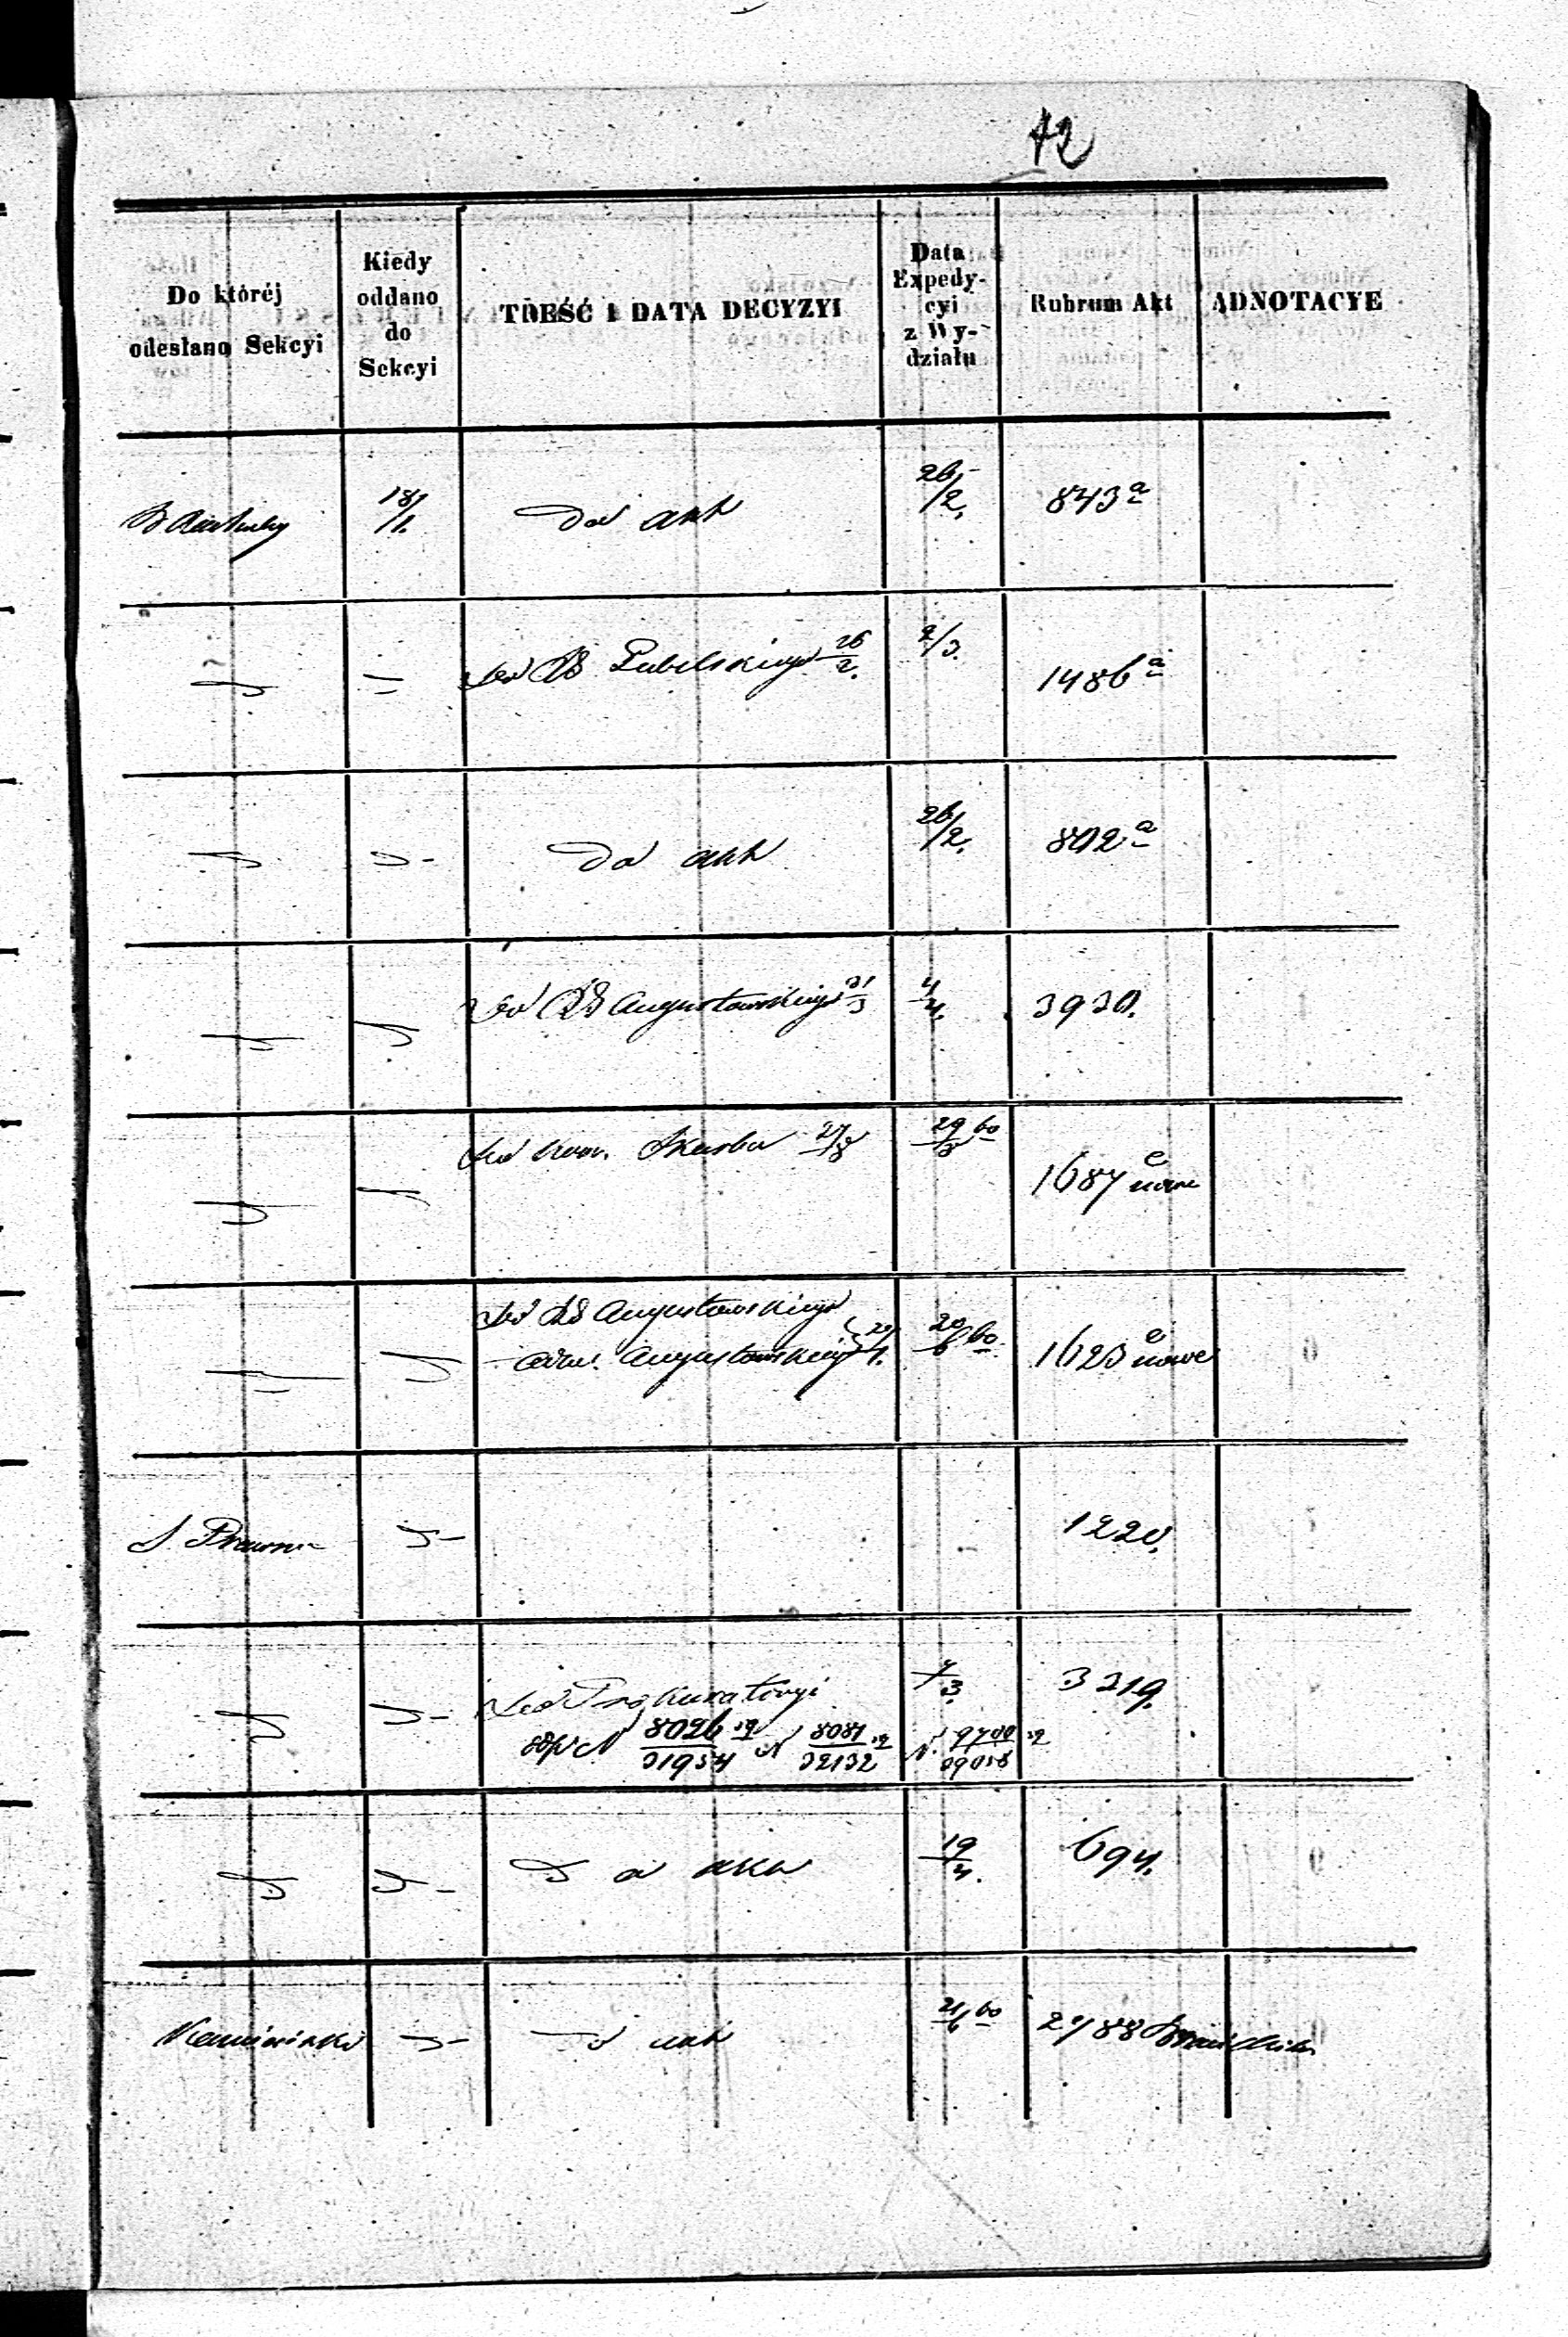 42
Do któréj odesłano Sekcyi
Kiedy oddano do Sekcyi
TREŚĆ I DATA DECYZYI
Data Expedycyi z Wydziału
Rubrum Akt
ADNOTACYE
18/1. Do akt 26/2. 843 a
Do RG Lubelskiego 26/2. 2/3. 1486 a
Do akt 26/2. 802 a
Do RG Augustowskiego 31/3 4/4. 3930.
Do Kom. Skarbu 27/8 29/8 60 1687 e nowe
Do RG Augustowskiego
Augustowskiej 20/6 60 1623 e nowe
S. Prawna 1220.
Do Prokuratoryi 4/3. 3219.
N 8026/31954 N 8081/32132 N. 9700/39058
Do akt 19/4. 694.
Kamiński Do akt 21/6 60 2988